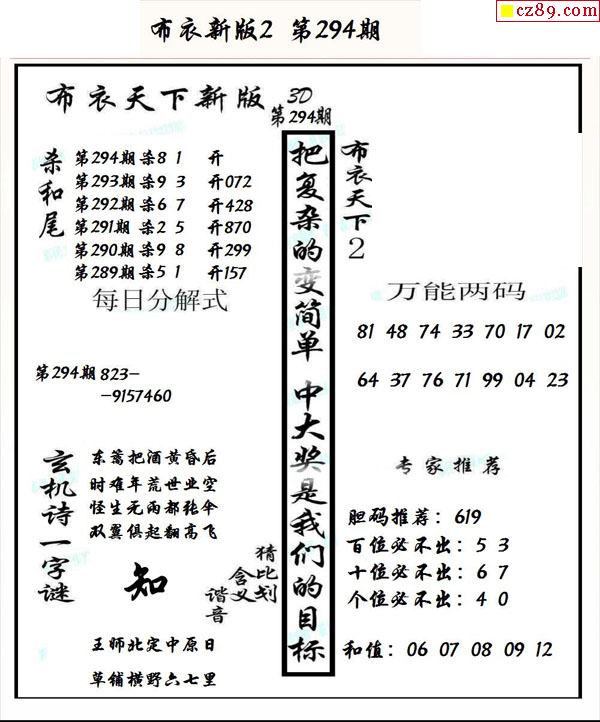 cz89.com
布衣新版2 第294期
布衣天下新版 3D
第294期
杀和尾
第294期杀8 1 开
第293期杀9 3 开072
第292期杀6 7 开428
第291期杀2 5 开870
第290期杀9 8 开299
第289期杀5 1 开157
每日分解式
第294期 823-
-9157460
玄机诗一字谜
东篱把酒黄昏后
时难年荒世业空
怪生无雨都张伞
双翼俱起翻高飞
知
猜比划
含义
谐音
王师北定中原日
草铺横野六七里
把复杂的变简单 中大奖是我们的目标
布衣天下2
万能两码
81 48 74 33 70 17 02
64 37 76 71 99 04 23
专家推荐
胆码推荐：619
百位必不出：5 3
十位必不出：6 7
个位必不出：4 0
和值：06 07 08 09 12